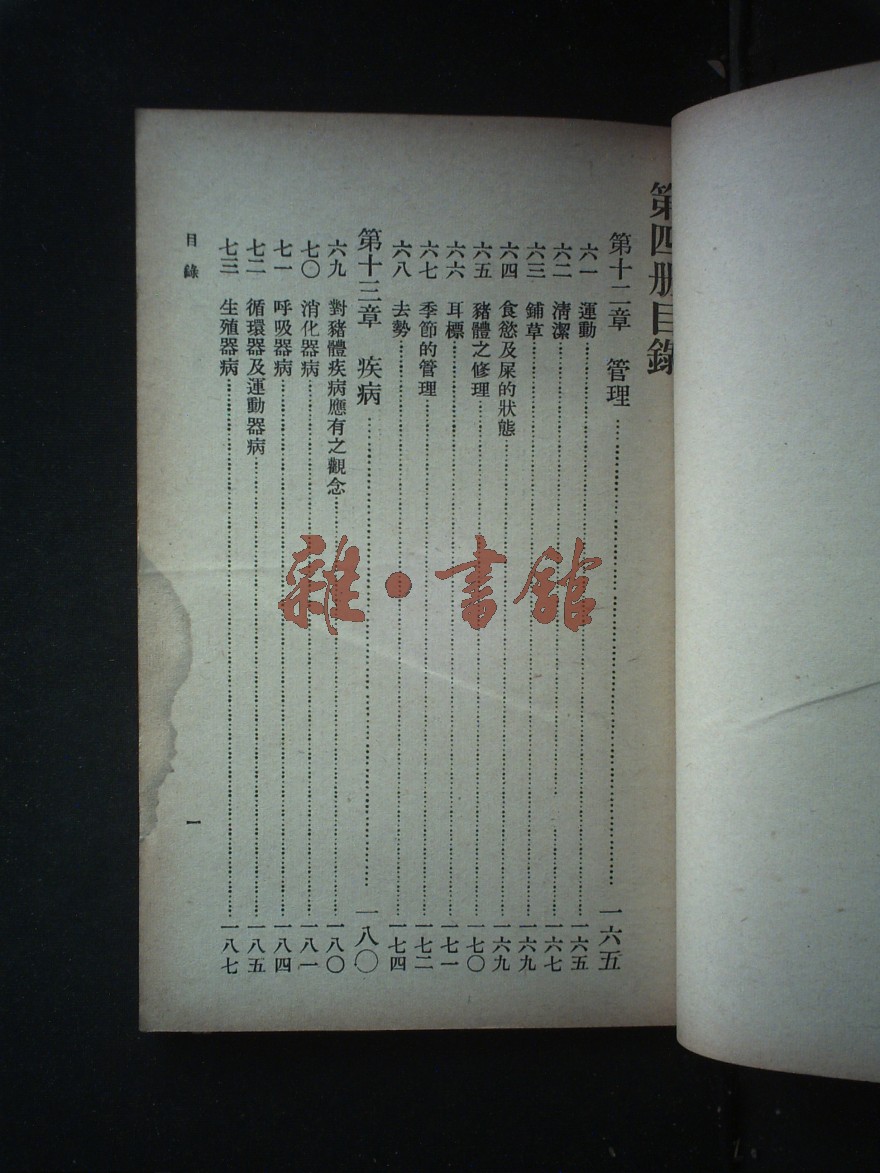 第四册目錄
第十二章 管理 一六五
六一 運動 一六五
六二 清潔 一六七
六三 鋪草 一六九
六四 食慾及屎的狀態 一六九
六五 豬體之修理 一七〇
六六 耳標 一七一
六七 季節的管理 一七二
六八 去勢 一七四
第十三章 疾病 一八〇
六九 對豬體疾病應有之觀念 一八〇
七〇 消化器病 一八一
七一 呼吸器病 一八四
七二 循環器及運動器病 一八五
七三 生殖器病 一八七
目錄
一
雜·書館